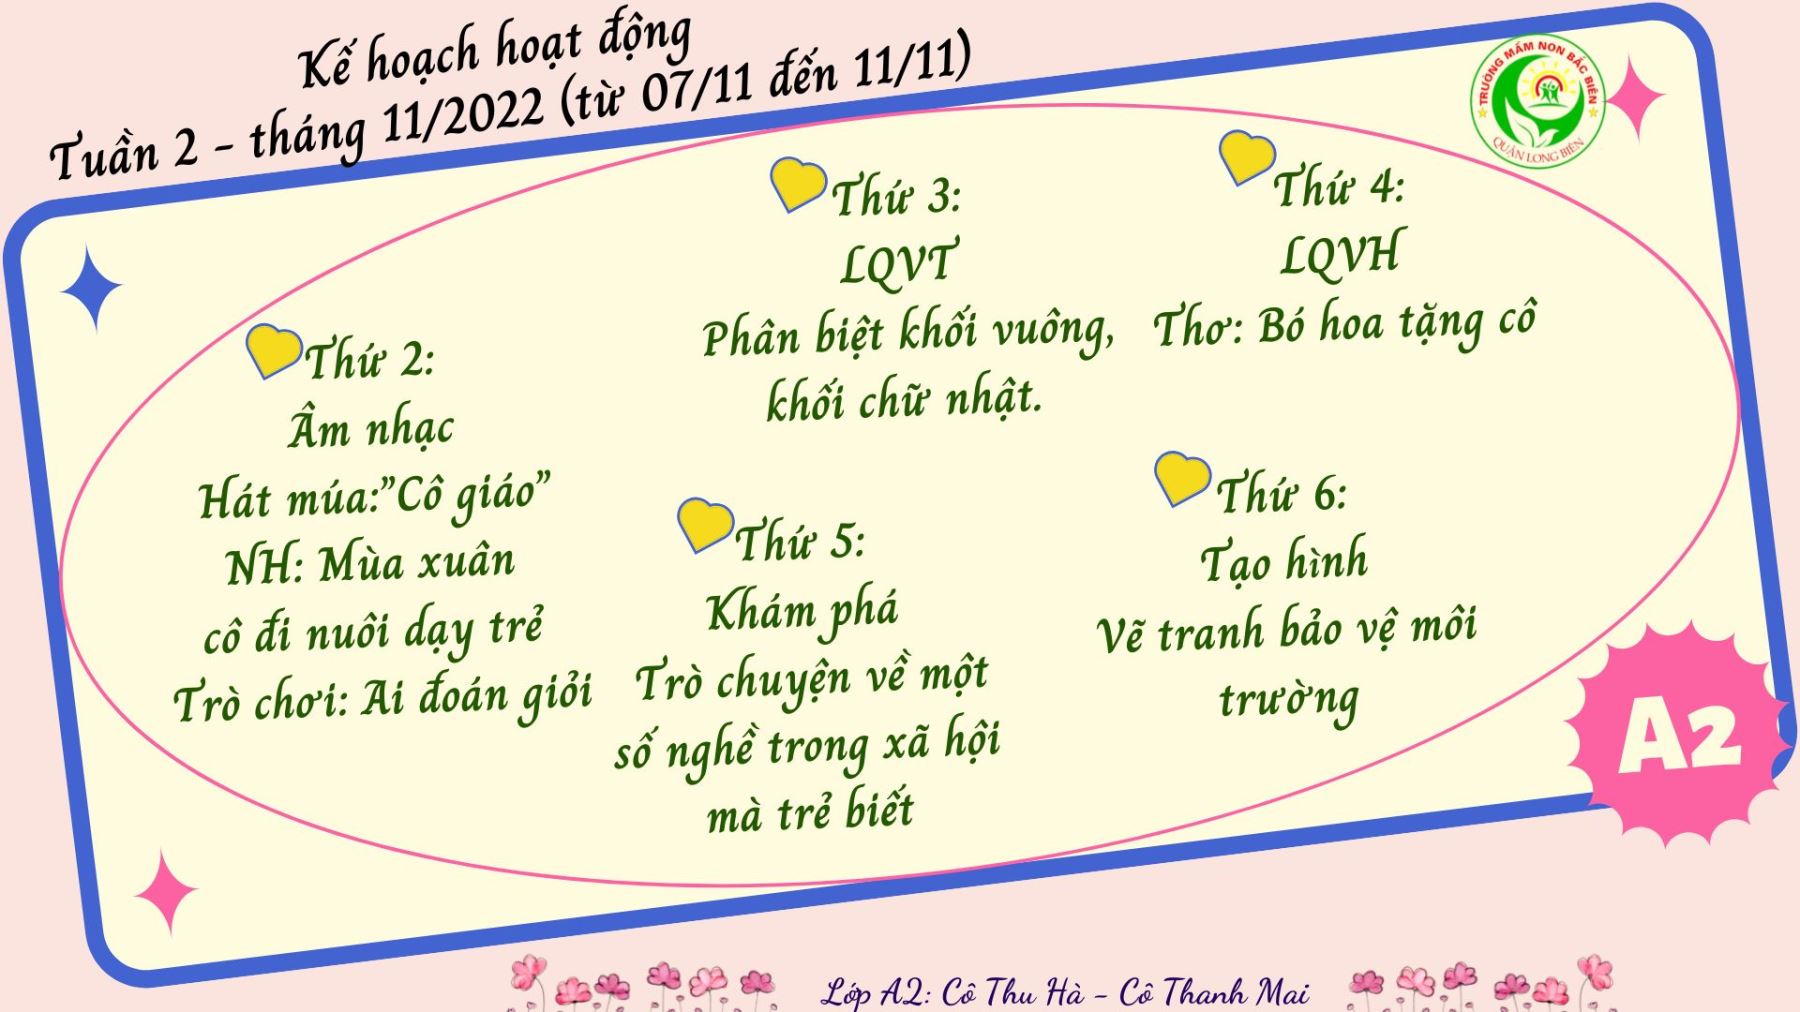 Kế hoạch hoạt động
Tuần 2 - tháng 11/2022 (từ 07/11 đến 11/11)
TRƯỜNG MẦM NON BẮC BIÊN
QUẬN LONG BIÊN
Thứ 2:
Âm nhạc
Hát múa:”Cô giáo”
NH: Mùa xuân
cô đi nuôi dạy trẻ
Trò chơi: Ai đoán giỏi
Thứ 3:
LQVT
Phân biệt khối vuông,
khối chữ nhật.
Thứ 4:
LQVH
Thơ: Bó hoa tặng cô
Thứ 5:
Khám phá
Trò chuyện về một
số nghề trong xã hội
mà trẻ biết
Thứ 6:
Tạo hình
Vẽ tranh bảo vệ môi
trường
A2
Lớp A2: Cô Thu Hà - Cô Thanh Mai